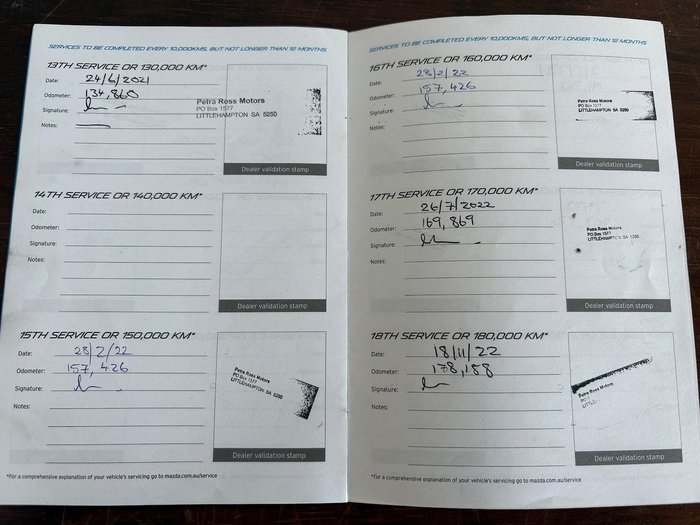 SERVICES TO BE COMPLETED EVERY 10,000KMS, BUT NOT LONGER THAN 12 MONTHS
13TH SERVICE OR 130,000 KM*
Date: 24/6/2021
Odometer: 134,860
Signature:
Notes:
Petra Ross Motors
PO Box 1577
LITTLEHAMPTON SA 5250
Dealer validation stamp
14TH SERVICE OR 140,000 KM*
Date:
Odometer:
Signature:
Notes:
Dealer validation stamp
15TH SERVICE OR 150,000 KM*
Date: 28/2/22
Odometer: 157,426
Signature:
Notes:
Petra Ross Motors
PO Box 1577
LITTLEHAMPTON SA 5250
Dealer validation stamp
*For a comprehensive explanation of your vehicle's servicing go to mazda.com.au/service
SERVICES TO BE COMPLETED EVERY 10,000KMS, BUT NOT LONGER THAN 12 MONTHS
16TH SERVICE OR 160,000 KM*
Date: 28/2/22
Odometer: 157,426
Signature:
Notes:
Petra Ross Motors
PO Box 1577
LITTLEHAMPTON SA 5250
Dealer validation stamp
17TH SERVICE OR 170,000 KM*
Date: 26/7/2022
Odometer: 169,869
Signature:
Notes:
Petra Ross Motors
PO Box 1577
LITTLEHAMPTON SA 5250
Dealer validation stamp
18TH SERVICE OR 180,000 KM*
Date: 18/11/22
Odometer: 178,188
Signature:
Notes:
Petra Ross Motors
Dealer validation stamp
*For a comprehensive explanation of your vehicle's servicing go to mazda.com.au/service